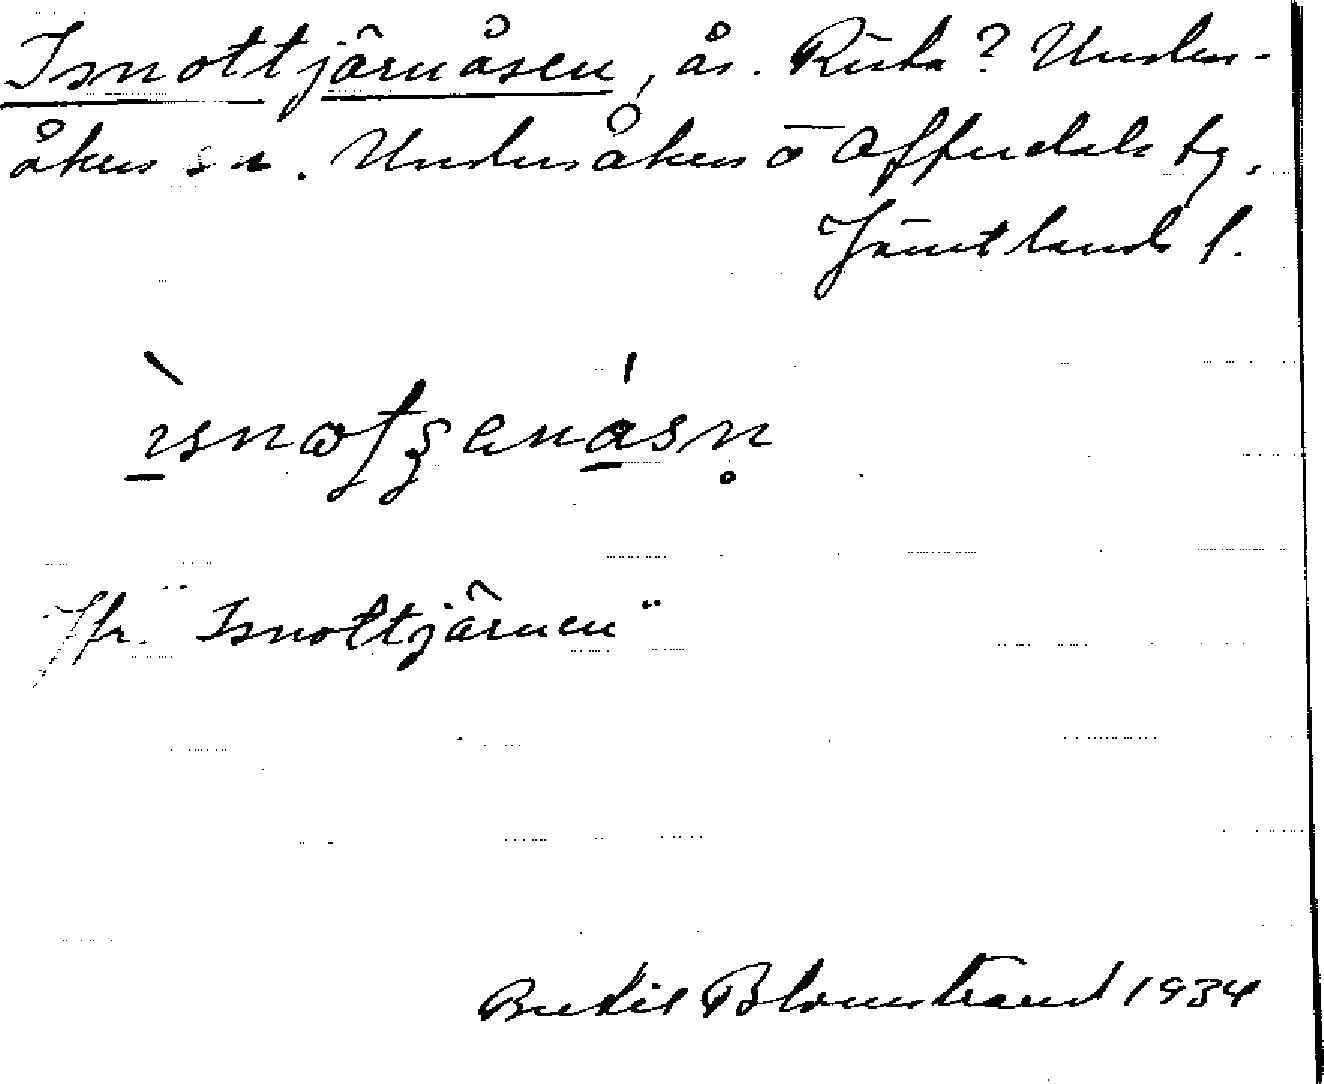 Isnottjärnåsen, ås. Rista? Unders-
åkers sn. Undersåkers o Offerdals tg.
Jämtlands l.
Jfr. "Isnottjärnen"
Bertil Blomstrand 1934